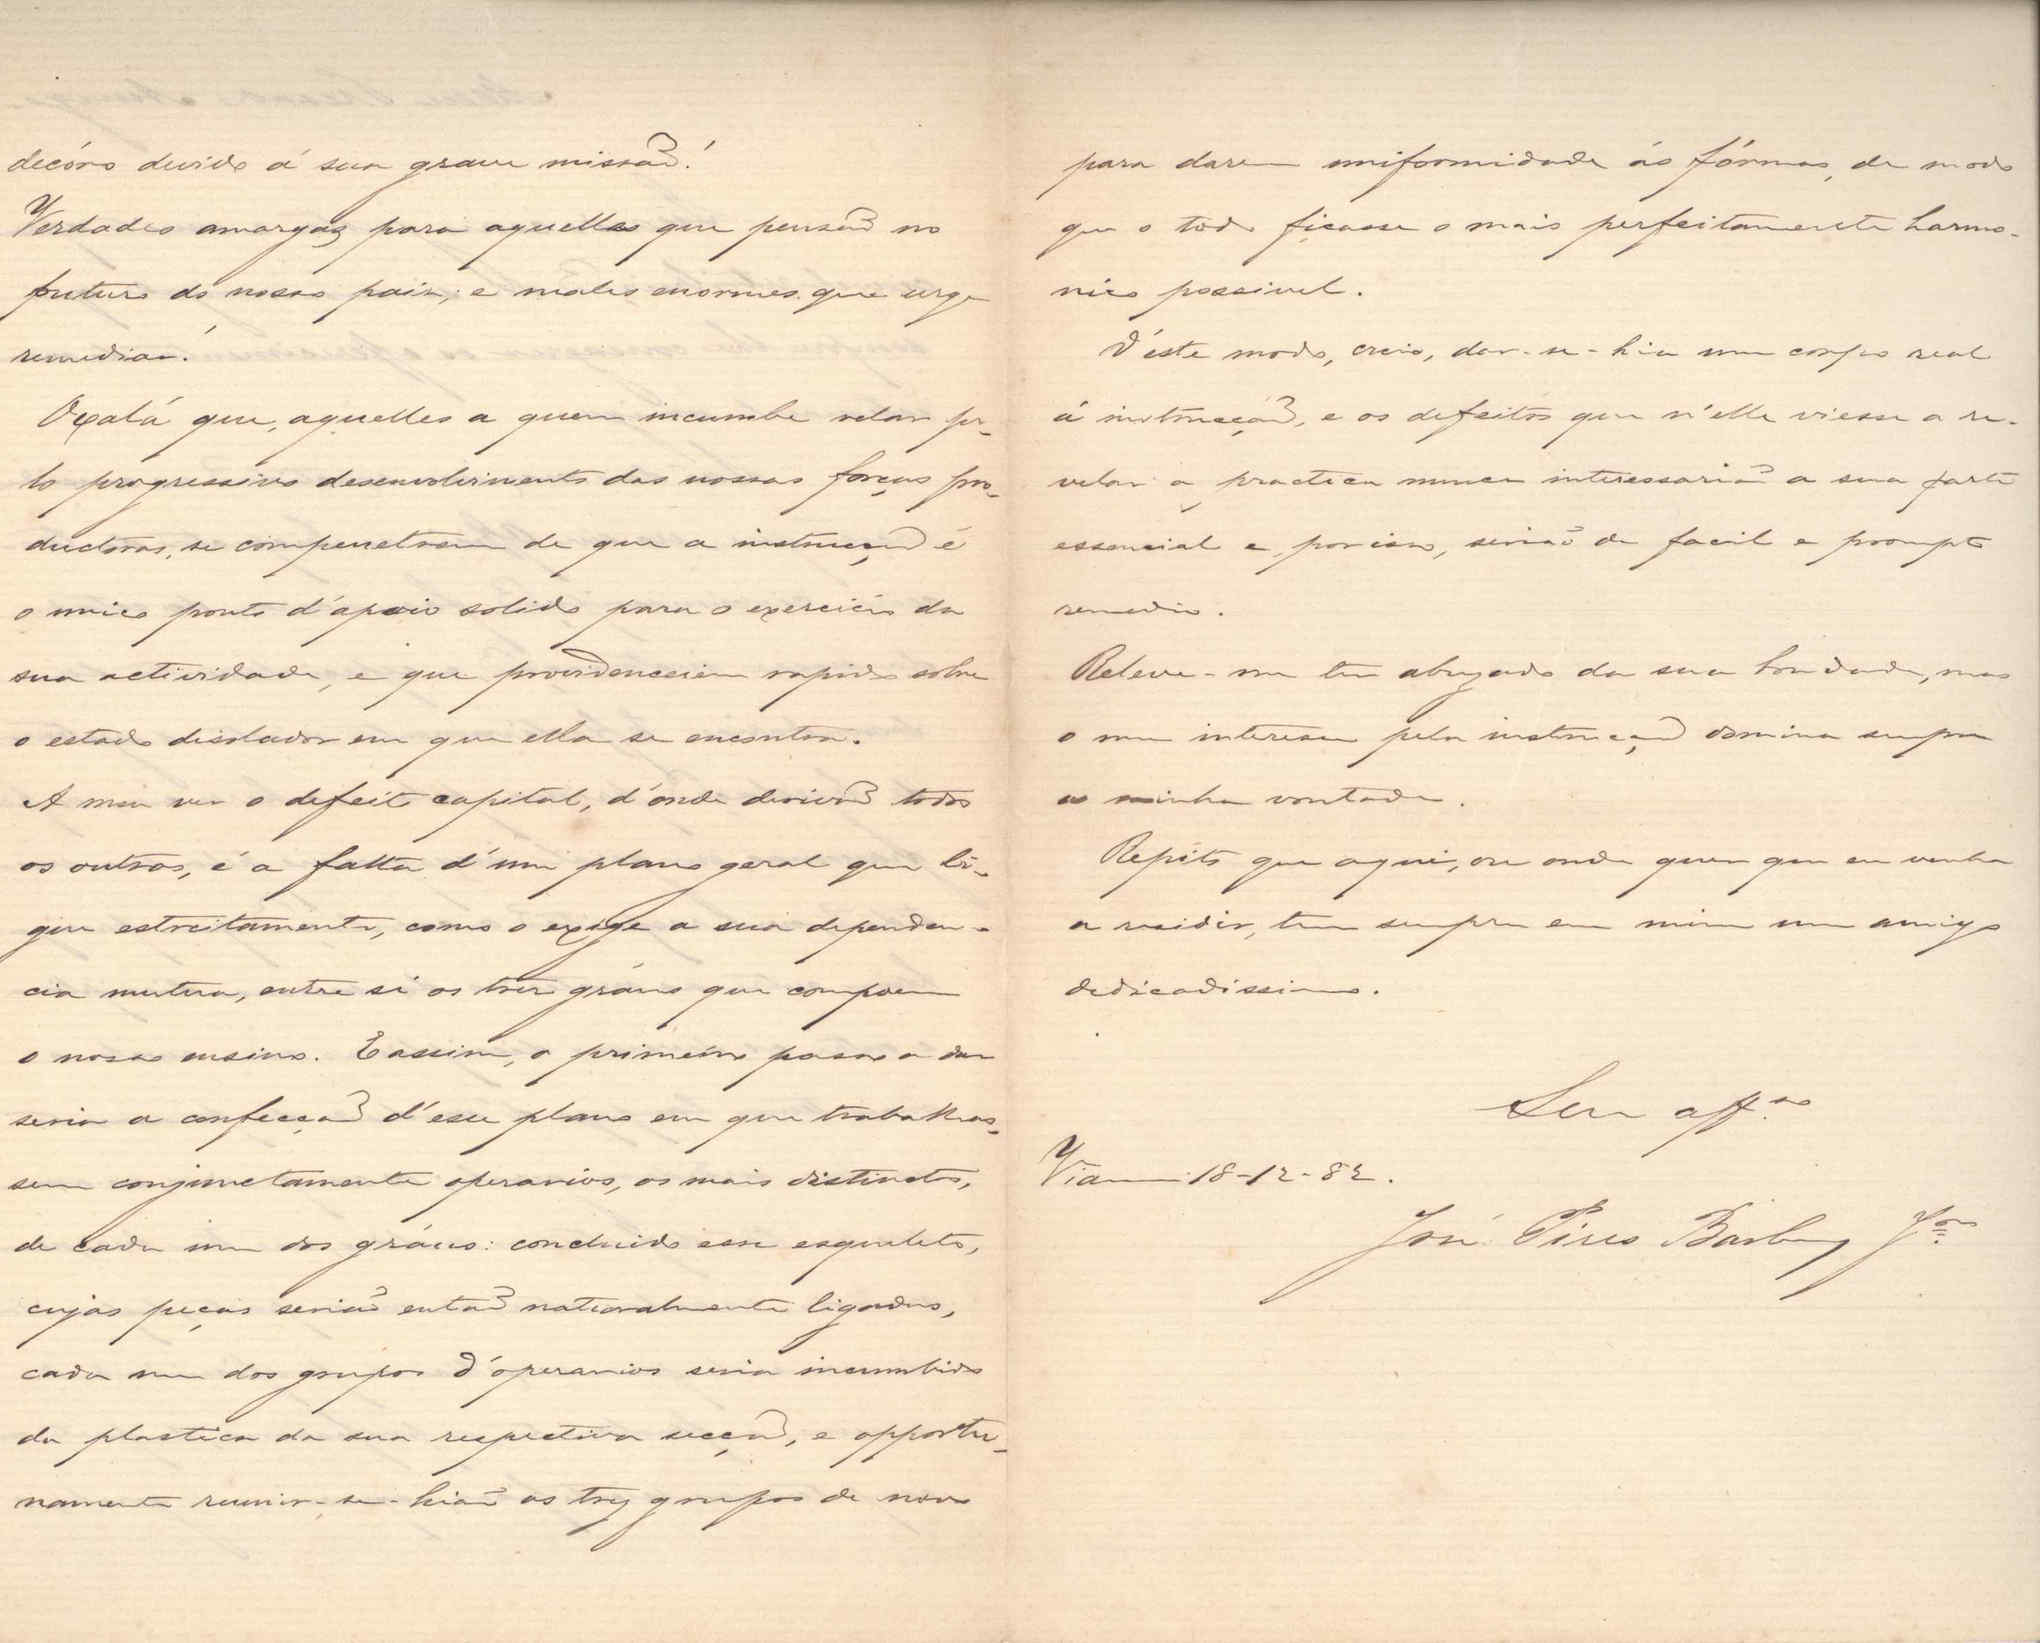 decóro devido á sua grave missaõ!
Verdades amargas para aquelles que pensaõ no
futuro do nosso paiz, e males enormes que urge
remediar!
Oxalá que, aquelles a quem incumbe velar pe-
lo progressivo desenvolvimento das nossas forças pro-
ductoras, se compenetrem de que a instrucçaõ é
o unico ponto d'apoio solido para o exercicio da
sua actividade, e que providenceiem rapido sobre
o estado disolador em que ella se encontra.
A meu ver o defeito capital, d'onde derivaõ todos
os outros, é a falta d'um plano geral que li-
gue estreitamente, como o exige a sua dependen-
cia mutua, entre si os tres gráus que compoem
o nosso ensino. E assim, o primeiro passo a dar
seria a confecçaõ d'esse plano em que trabalhas-
sem conjunctamente operarios, os mais distinctos,
de cada um dos gráus: concluido esse esqueleto,
cujas peças seriaõ entaõ naturalmente ligadas,
cada um dos grupos d'operarios seria incumbido
da plastica da sua respectiva secçaõ, e opportu-
namente reunir-se-hiaõ os trez grupos de novo
para darem uniformidade ás fórmas, de modo
que o todo ficasse o mais perfeitamente harmo-
nico possivel.
D'este modo, creio, dar-se-hia um corpo real
á instrucçaõ, e os defeitos que n'elle viesse a re-
velar a practica nunca interessariaõ a sua parte
essencial e, por isso, seriaõ de facil e prompto
remedio.
Releve-me ter abuzado da sua bondade, mas
o meu interesse pela instrucçaõ domina sempre
a minha vontade.
Repito que aqui, ou onde quer que eu venha
a residir, tem sempre em mim um amigo
dedicadissimo.
Seu aff.mo
Vianna 18-12-82.
José Pires Barbosa J.or